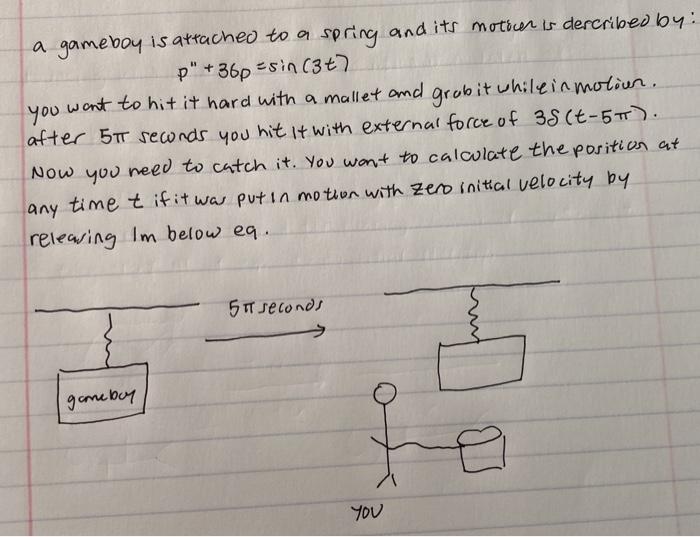 a gameboy is attached to a spring and its motion is described by:
p" + 36p = sin(3t)
you want to hit it hard with a mallet and grab it while in motion.
after 5π seconds you hit it with external force of 3δ(t-5π).
Now you need to catch it. You want to calculate the position at
any time t if it was put in motion with zero initial velocity by
releasing 1m below eq.
5π seconds
gameboy
YOU